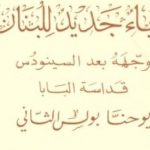 اء جديد للبنان
وجّهه بعد السينودُس
قداسة البابا
يوحنّا بولس الثّاني